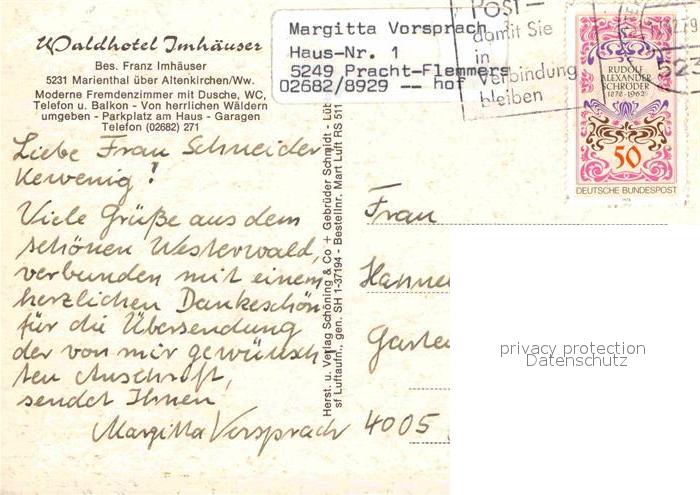 Waldhotel Imhäuser
Bes. Franz Imhäuser
5231 Marienthal über Altenkirchen/Ww.
Moderne Fremdenzimmer mit Dusche, WC,
Telefon u. Balkon - Von herrlichen Wäldern
umgeben - Parkplatz am Haus - Garagen
Telefon (02682) 271
Liebe Frau Schneider
Kewenig!
Viele Grüße aus dem
schönen Westerwald,
verbunden mit einem
herzlichen Dankeschön
für die Übersendung
der von mir gewünsch
ten Anschrift,
sendet Ihnen
Margitta Vorsprach
Herst. u. Verlag Schöning & Co + Gebrüder Schmidt - Lüb
sf Luftaufn., gen. SH 1-37194 - Bestellnr. Mart Luft RS 511
Margitta Vorsprach
Haus-Nr. 1
5249 Pracht-Flemmers
02682/8929 -- hof
POST-
damit Sie
in
Verbindung
bleiben
79
523
RUDOLF
ALEXANDER
SCHRÖDER
1878-1962
50
DEUTSCHE BUNDESPOST
Frau
Hanne
Garte
4005
privacy protection
Datenschutz